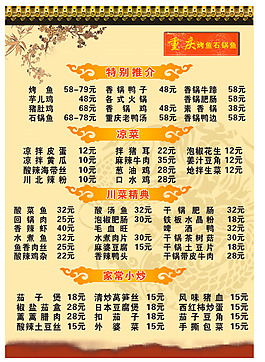 重庆烤鱼石锅鱼
特别推介
烤鱼 58-79元 香锅鸭子 48元 香锅牛蹄 58元
芋儿鸡 48元 各式火锅 香锅肥肠 58元
猪肚鸡 68元 香锅鸡 48元 素香锅 38元
石锅鱼 68-78元 重庆老鸭汤 58元 香锅鸭边 58元
凉菜
凉拌皮蛋 12元 拌猪耳 22元 泡椒花生 12元
凉拌黄瓜 10元 麻辣牛肉 35元 姜汁豆角 12元
酸辣海带丝 10元 葱油鸡 28元 炝拌生菜 12元
川北辣粉 10元 口水鸡 28元
川菜精典
酸菜鱼 32元 酸汤鱼 32元 干锅肥肠 32元
回锅肉 25元 泡椒肥肠 30元 铁板水晶粉 18元
香辣虾 40元 毛血旺 啤酒鸭 32元
水煮鱼 32元 水煮肉片 30元 干锅茶树菇 30元
鱼香肉丝 25元 麻婆豆腐 15元 干锅土豆片 18元
酸辣鸡杂 22元 香辣鸭头 干锅带皮牛肉
家常小炒
茄子煲 18元 清炒莴笋丝 15元 风味猪血 15元
椒盐茄盒 18元 日本豆腐煲 18元 西红柿炒蛋 15元
蒿蒿腊肉 30元 扣茄子 18元 茄子豆角 15元
酸辣土豆丝 15元 外婆菜 15元 手撕包菜 15元